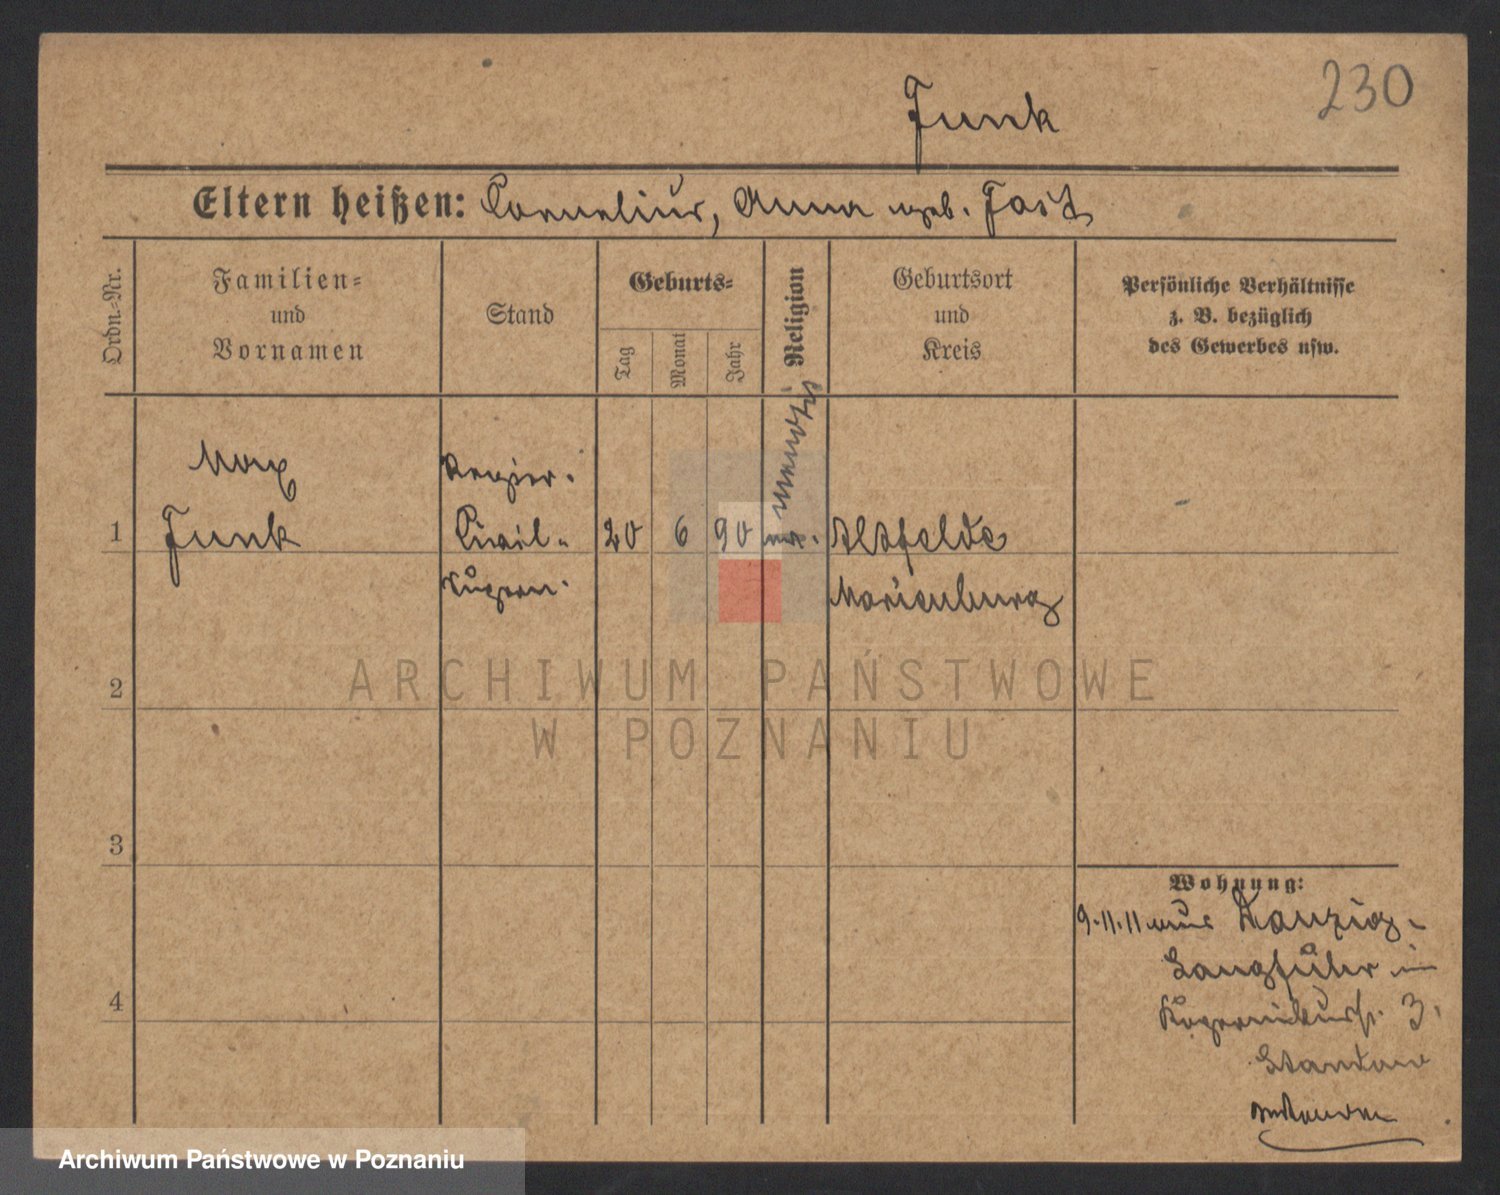 230
Junk
Eltern heißen: Cornelius, Anna geb. Fast
Ordn.-Nr.
Familien-
und
Vornamen
Stand
Geburts-
Tag
Monat
Jahr
Religion
Geburtsort
und
Kreis
Persönliche Verhältnisse
z. B. bezüglich
des Gewerbes usw.
1
Max
Junk
Regier.
Civil-
Supern.
20
6
90
Altfelde
Marienburg
2
3
4
Wohnung:
9.11.11 aus Danzig-
Langfuhr in
Kopernikusstr. 3,
ARCHIWUM PAŃSTWOWE
W POZNANIU
Archiwum Państwowe w Poznaniu